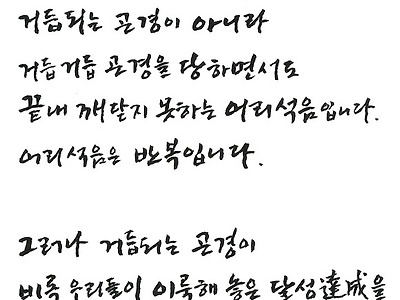 거듭되는 곤경이 아니라
거듭거듭 곤경을 당하면서도
끝내 깨닫지 못하는 어리석음입니다.
어리석음은 반복입니다.
그러나 거듭되는 곤경이
비록 우리들이 이룩해 놓은 달성達成을